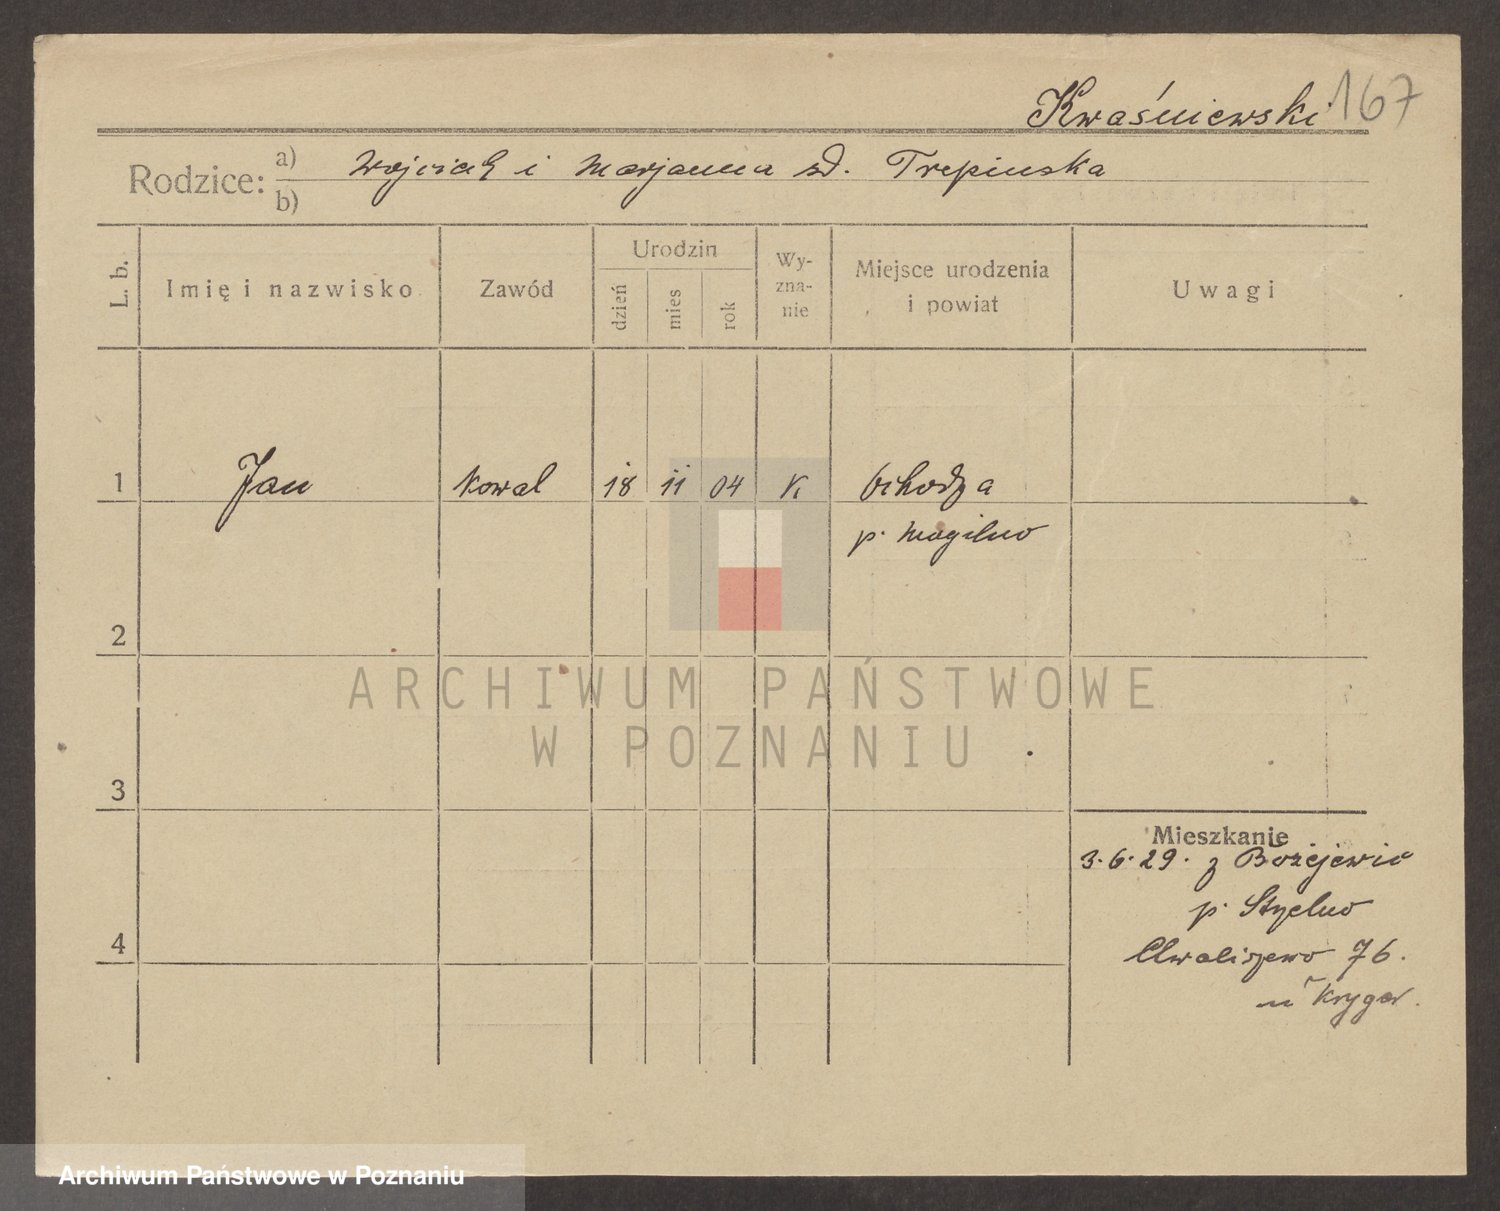 Kwaśniewski 167
Rodzice: a) Wojciech i Marjanna zd. Trepinska
b)
L. b. Imię i nazwisko Zawód Urodzin dzień mies rok Wyznanie Miejsce urodzenia i powiat Uwagi
1 Jan kowal 18 11 04 K
p. Mogilno
2
ARCHIWUM PAŃSTWOWE
W POZNANIU
3
Mieszkanie
3.6.29. z Bożejewic
p.
4
Chwaliszewo 76.
u Kryger.
Archiwum Państwowe w Poznaniu